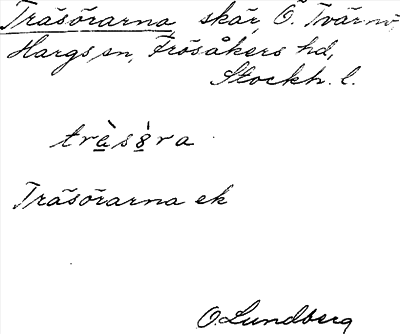 Träsörarna skär, Ö. Tvärnö,
Hargs sn, Frösåkers hd,
Stockh. l.
tràsòra
Träsörarna ek
O. Lundberg